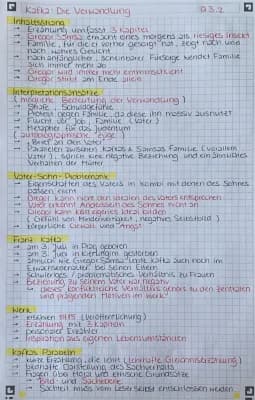 Kafka: Die Verwandlung
9.3.2.
Inhaltsstrang
→ Erzählung umfasst 3 Kapitel
→ Gregor Samsa erwacht eines morgens als riesiges Insekt
→ Familie, für die er vorher gesorgt hat, zeigt nach und
nach wahres Gesicht
→ nach anfänglicher, scheinbarer Fürsorge wendet Familie
sich immer mehr ab
→ Gregor wird immer mehr
→ Gregor stirbt am Ende allein
Interpretationsansätze
(mögliche Bedeutung der Verwandlung)
→ Strafe, Schuldgefühle
→ Protest gegen Familie, da diese ihn massiv ausnutzt
→ Flucht vor Job, Familie (Vater)
→ Metapher für das Judentum
(autobiographische Züge)
→ "Brief an den Vater"
→ Parallelen zwischen Kafkas & Samsas Familie (v.allem
Vater), sprich eine negative Beziehung und ein ähnliches
Verhalten der Mütter
Vater-Sohn-Problematik
→ Eigenschaften des Vaters in Kombi mit denen des Sohnes
passen nicht
→ Gregor kann nicht den Idealen des Vaters entsprechen
→ Vater erkennt Anderssein des Sohnes nicht an
→ Gregor kann kein eigenes Ideal bilden
(Gefühl von Minderwertigkeit, negatives Selbstbild)
→ körperliche Gewalt und "Angst"
Franz Kafka
→ am 3. Juli in Prag geboren
→ am 3. Juni in Kierling gestorben
→ ähnlich wie Gregor Samsa lebte Kafka auch noch im
Erwachsenenalter bei seinen Eltern
→ schwieriges / problematisches Verhältnis zu Frauen
→ Beziehung zu seinem Vater war negativ
→ "dieses konfliktreiche Verhältnis gehört zu den zentralen
und prägenden Motiven im Werk"
Werk
→ erschien 1915 (Veröffentlichung)
→ Erzählung mit 3 Kapiteln
→ personaler Erzähler
→ Inspiration aus eigenen Lebensumständen
Kafkas Parabeln
→ kurze Erzählung, die lehrt (lehrhafte Gleichniserzählung)
→ bildhafte Darstellung des Sachverhalts
→ Fragen über Moral und ethische Grundsätze
→ Bild- und Sachebene
→ Sachteil muss vom Leser selbst entschlossen werden